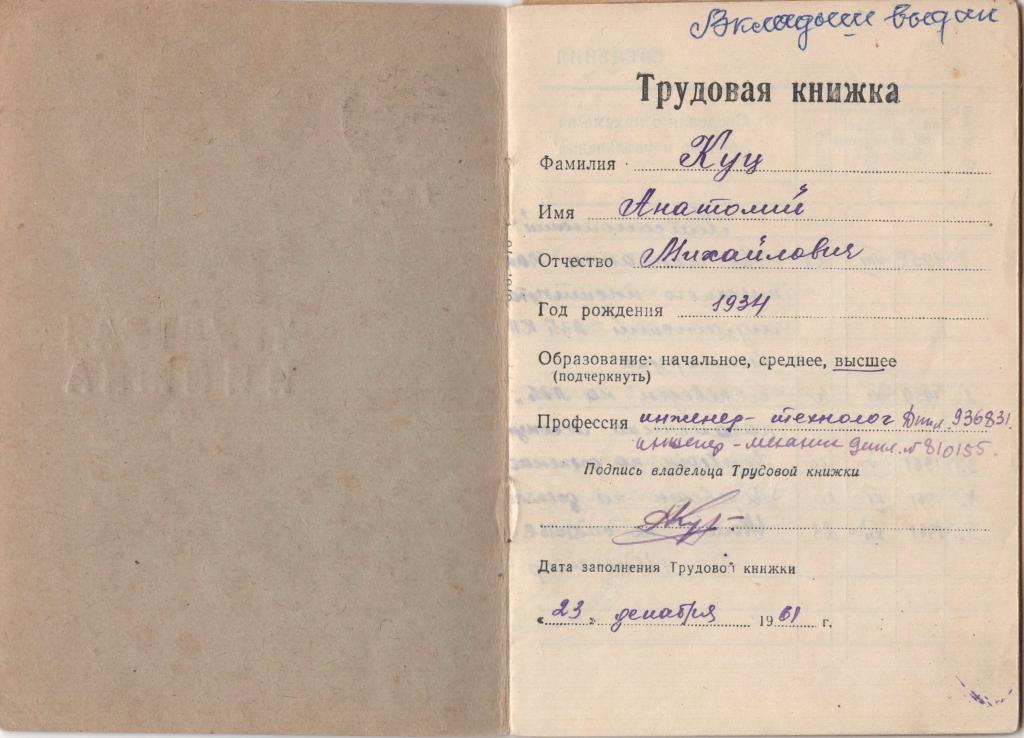 Вкладыш выдан
Трудовая книжка
Фамилия Куц
Имя Анатолий
Отчество Михайлович
Год рождения 1934
Образование: начальное, среднее, высшее
(подчеркнуть)
Профессия инженер-технолог Дипл. 936831.
инженер-механик дипл. № 810155.
Подпись владельца Трудовой книжки
Дата заполнения Трудовой книжки
«23» декабря 1961 г.